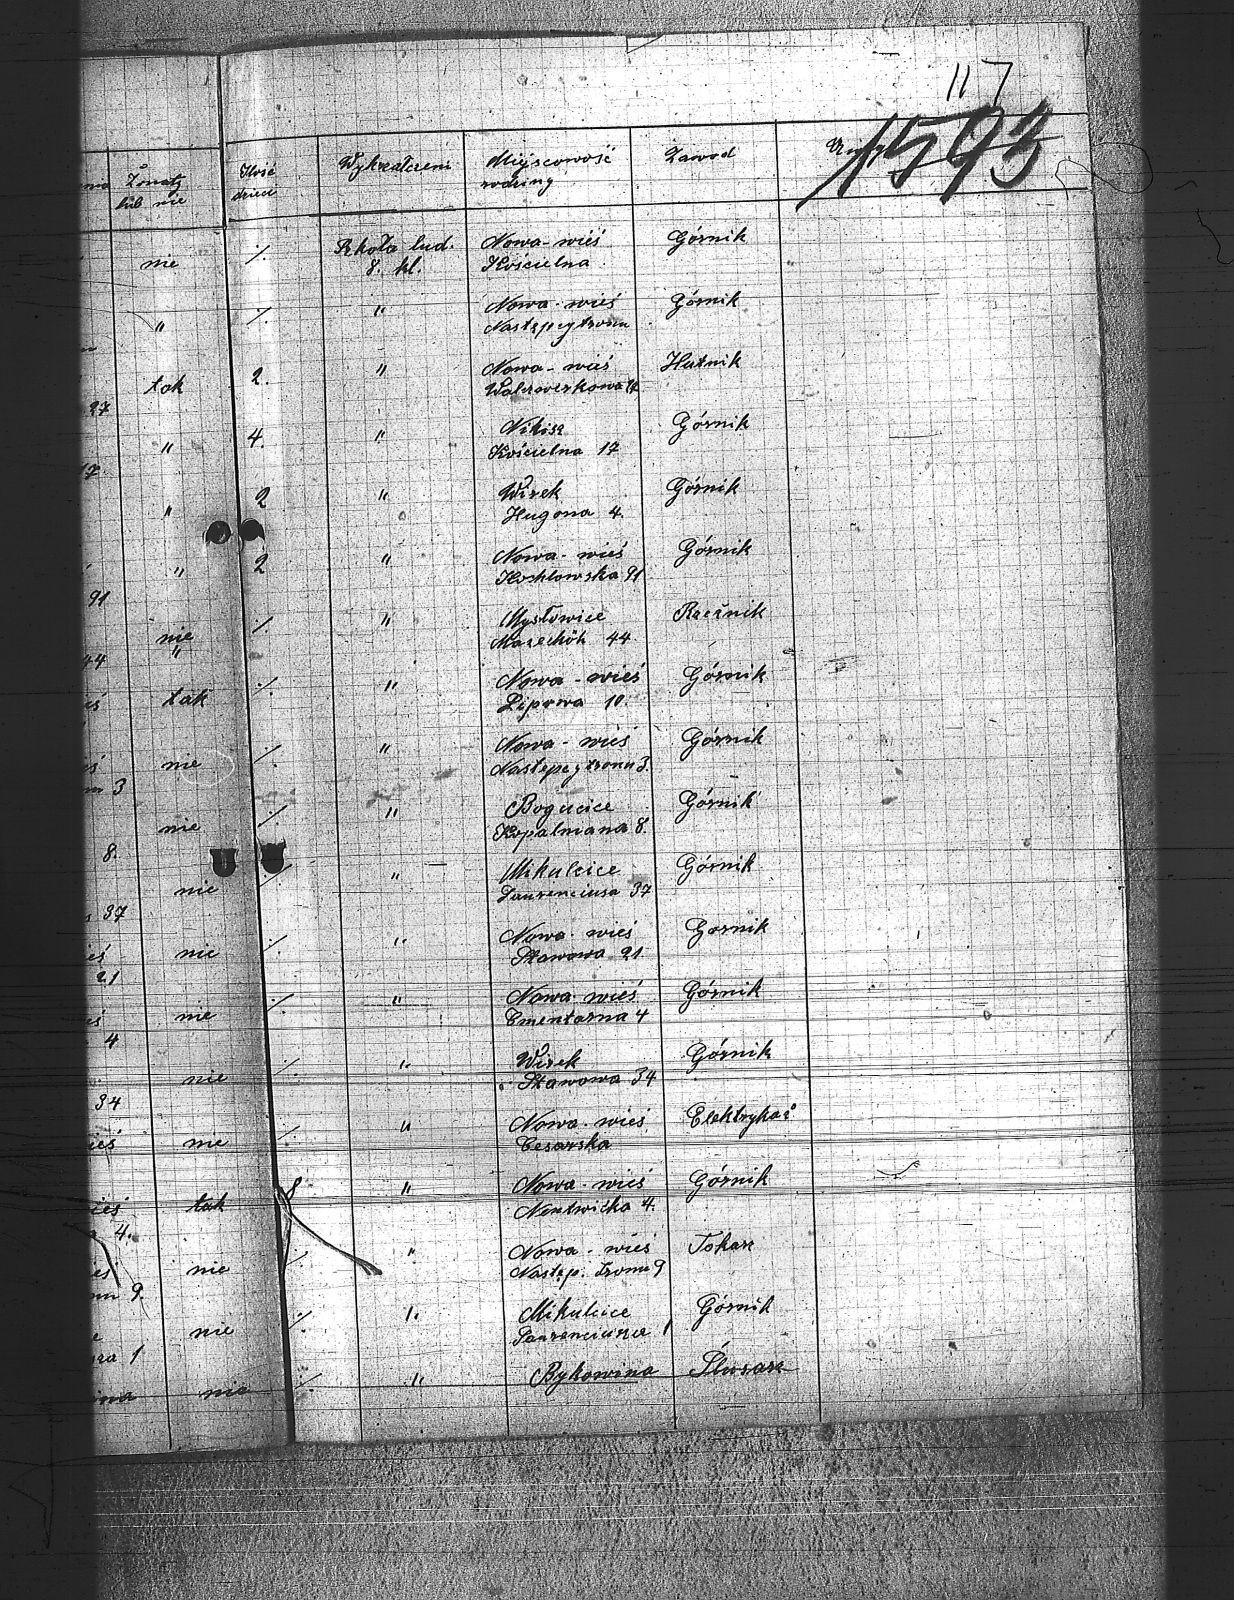 117
1593
Żonaty
lub nie
Ilość
dzieci
Wykształceni
Miejscowość
rodziny
Zawód
nie
./.
Szkoła lud.
8. kl.
Nowa-wieś
Kościelna
Górnik
"
./.
"
Nowa-wieś
Następcytronu
Górnik
tak
2.
"
Nowa-wieś
Hutnik
27
"
4.
"
Nikisz
Kościelna 17
Górnik
17
"
2
"
Wirek
Hugona 4.
Górnik
"
2
"
Nowa-wieś
Kochlowska 91
Górnik
91
nie
"
./.
"
Mysłowice
44
Rzeźnik
44
tak
./.
"
Nowa-wieś
Lipowa 10.
Górnik
nie
./.
"
Nowa-wieś
Następcytronu 3.
Górnik
3
nie
./.
"
Bogucice
Kopalniana 8.
Górnik
8.
nie
./.
"
Mikulcice
Laurenciusa 37
Górnik
37
nie
./.
"
Nowa-wieś
Stawowa 21
Górnik
21
nie
./.
"
Nowa-wieś
Cmentarna 4
Górnik
4
nie
./.
"
Wirek
Stawowa 34
Górnik
34
nie
./.
"
Nowa-wieś
Cesarska
Elektrykaż
tak
8
"
Nowa-wieś
4.
Górnik
4.
nie
./.
"
Nowa-wieś
Następ. tronu 9
Tokarz
9.
nie
./.
"
Mikulcice
1
Górnik
1
nie
./.
"
Bykowina
Ślusarz